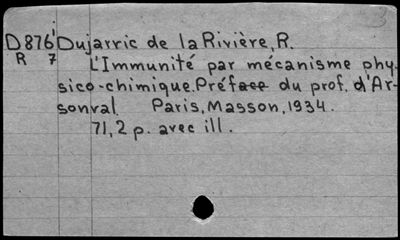 D876i Dujarric de la Rivière, R.
R 7 L'Immunité par mécanisme phy-
sico-chimique. Préface du prof. d'Ar-
sonval. Paris, Masson, 1934.
71, 2 p. avec ill.